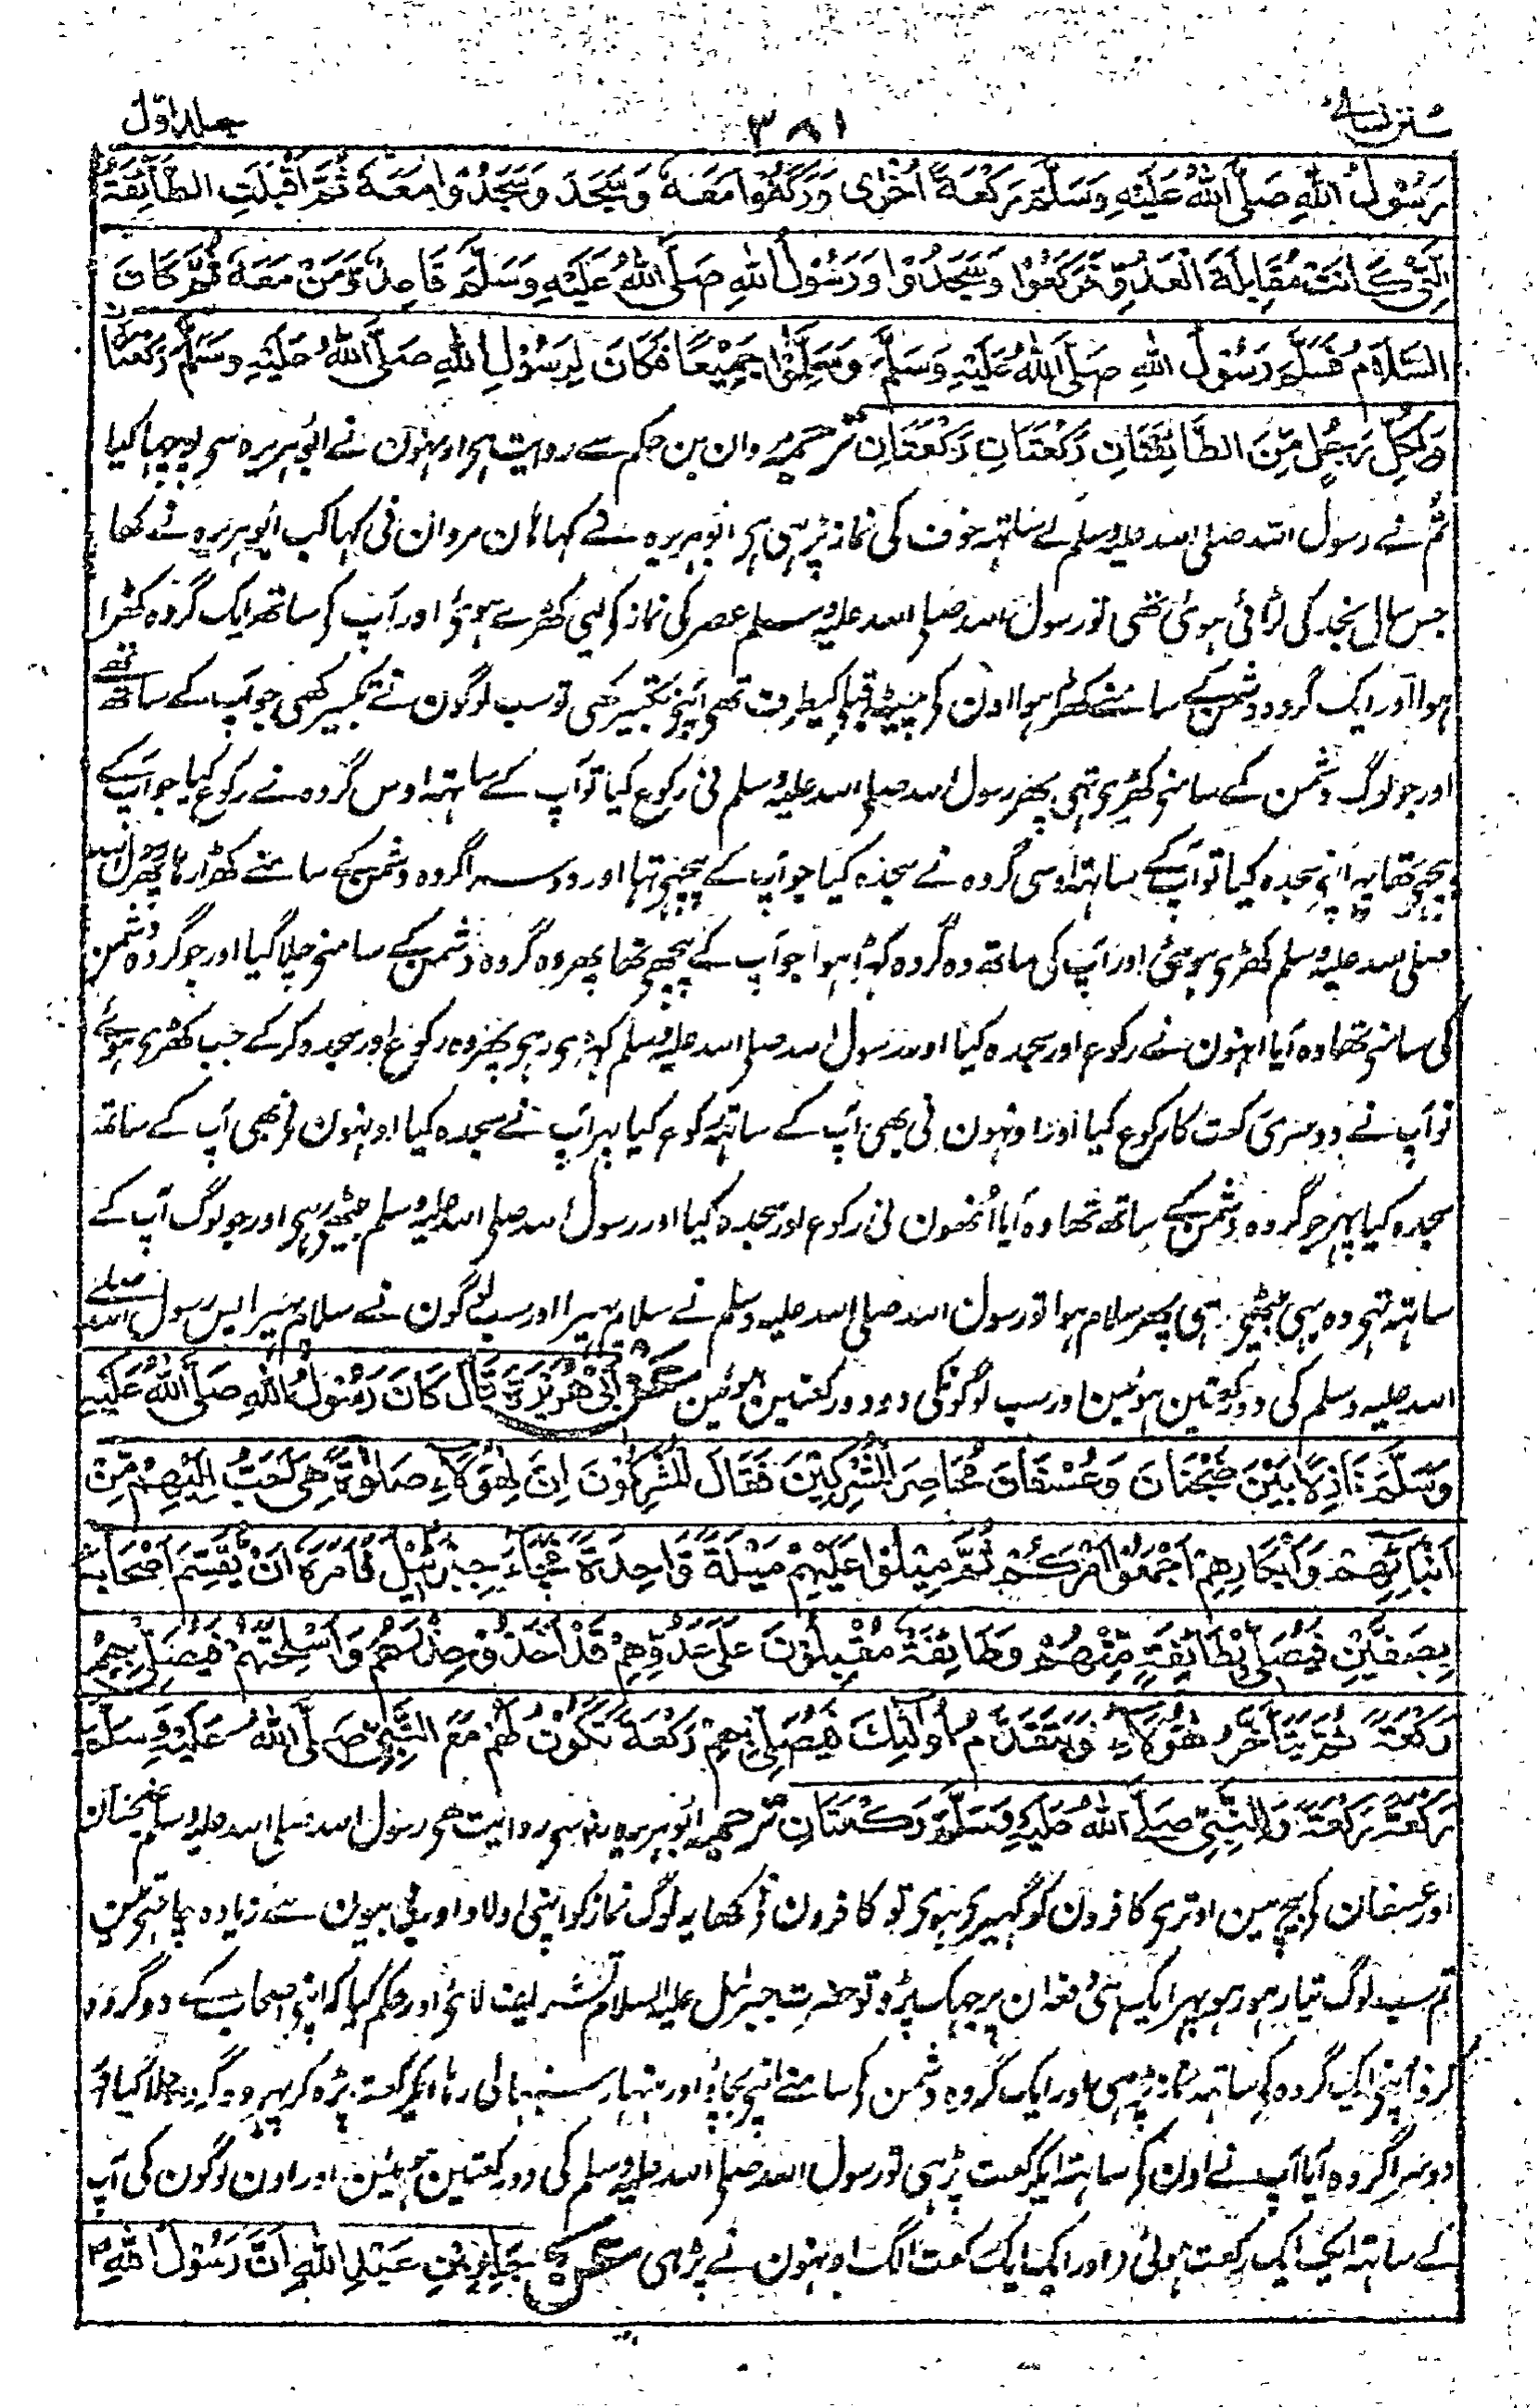 سنن نسائی ۳۸۱ جلد اول
رَسُوْلُ اللهِ صَلَّى اللهُ عَلَيْهِ وَسَلَّمَ رَكْعَةً اُخْرٰى وَرَكَعُوْا مَعَهٗ وَسَجَدَ وَسَجَدُوْا مَعَهٗ ثُمَّ اَقْبَلَتِ الطَّآئِفَةُ
الَّتِيْ كَانَتْ مُقَابِلَةَ الْعَدُوِّ فَرَكَعُوْا وَسَجَدُوْا وَرَسُوْلُ اللهِ صَلَّى اللهُ عَلَيْهِ وَسَلَّمَ قَاعِدٌ وَمَنْ مَعَهٗ ثُمَّ كَانَ
السَّلَامُ فَسَلَّمَ رَسُوْلُ اللهِ صَلَّى اللهُ عَلَيْهِ وَسَلَّمَ وَسَلَّمُوْا جَمِيْعًا فَكَانَ لِرَسُوْلِ اللهِ صَلَّى اللهُ عَلَيْهِ وَسَلَّمَ رَكْعَتَانِ
وَلِكُلِّ رَجُلٍ مِّنَ الطَّائِفَتَانِ رَكْعَتَانِ رَكْعَتَانِ ترجمہ مروان بن حکم سے روایت ہی اونہون نے ابوہریرہ سی پوچھا کیا
تم نے رسول اللہ صلی اللہ علیہ وسلم کے ساتہہ خوف کی نماز پڑہی ہی ابوہریرہ نے کہا ہان مروان نی کہا کب ابوہریرہ نے کہا
جس سال نجد کی لڑائی ہوئی تھی تو رسول اللہ صلی اللہ علیہ وسلم عصر کی نماز کو لیی کھڑے ہوئی اور آپ کو ساتھ ایک گروہ کھڑا
ہوا اور ایک گروہ دشمن کے سامنے کھڑا ہوا اون کی پیٹھ قبلہ کیطرف تھی آپنے تکبیر کہی تو سب لوگون نے تکبیر کہی جو آپ کے ساتھ تھے
اور جو لوگ دشمن کے سامنی کھڑی تہی پھر رسول اللہ صلی اللہ علیہ وسلم نی رکوع کیا تو آپ کے ساتہہ اوس گروہ نے رکوع کیا جو آپ کے
پیچھے تھا پہر آپنے سجدہ کیا تو آپ کے ساتہہ اوسی گروہ نے سجدہ کیا جو آپ کے پیچہی تہا اور دوسرا گروہ دشمن کے سامنے کھڑا رہا پھر رسول اللہ
صلی اللہ علیہ وسلم کھڑی ہوئی اور آپ کی ساتھ وہ گروہ کہڑا ہوا جو آپ کے پیچھے تھا پھر وہ گروہ دشمن کے سامنی چلا گیا اور جو گروہ دشمن
کی سامنی تھا وہ آیا انہون نے رکوع اور سجدہ کیا اور رسول اللہ صلی اللہ علیہ وسلم کہڑی رہی پھر وہ رکوع اور سجدہ کر کے جب کھڑی ہوئے
تو آپ نے دوسری رکعت کا رکوع کیا اور اونہون نی بھی آپ کے ساتہہ رکوع کیا پہر آپ نے سجدہ کیا اونہون نی بھی آپ کے ساتہہ
سجدہ کیا پہر جو گروہ دشمن کے ساتھ تھا وہ آیا اُنھون نی رکوع اور سجدہ کیا اور رسول اللہ صلی اللہ علیہ وسلم بیٹھے رہی اور جو لوگ آپ کے
ساتہہ تہی وہ بہی بیٹھی رہی پھر سلام ہوا تو رسول اللہ صلی اللہ علیہ وسلم نے سلام پہیرا اور سب لوگون نے سلام پہیرا پس رسول اللہ صلے
اللہ علیہ وسلم کی دو رکعتین ہوئین اور سب لوگونکی دو دو رکعتین ہوئین عَنْ اَبِيْ هُرَيْرَةَ قَالَ كَانَ رَسُوْلُ اللهِ صَلَّى اللهُ عَلَيْهِ
وَسَلَّمَ نَازِلًا بَيْنَ ضَجْنَانَ وَعُسْفَانَ مُحَاصِرَ الْمُشْرِكِيْنَ فَقَالَ الْمُشْرِكُوْنَ اِنَّ لِهٰؤُلَاءِ صَلٰوةً هِيَ اَحَبُّ اِلَيْهِمْ مِّنْ
اَبْنَائِهِمْ وَاَبْكَارِهِمْ اَجْمِعُوْا اَمْرَكُمْ ثُمَّ مِيْلُوْا عَلَيْهِمْ مَيْلَةً وَّاحِدَةً فَجَآءَ جِبْرَئِيْلُ فَاَمَرَهٗ اَنْ يَّقْسِمَ اَصْحَابَهٗ
بِصَفَّيْنِ فَيُصَلِّيْ بِطَآئِفَةٍ مِّنْهُمْ وَطَائِفَةٌ مُقْبِلُوْنَ عَلٰى عَدُوِّهِمْ قَدْ اَخَذُوْا حِذْرَهُمْ وَاَسْلِحَتَهُمْ فَيُصَلِّيْ بِهِمْ
رَكْعَةً ثُمَّ يَتَاَخَّرُ هٰؤُلَاءِ وَيَتَقَدَّمُ اُولٰئِكَ فَيُصَلِّيْ بِهِمْ رَكْعَةً تَكُوْنُ لَهُمْ مَعَ النَّبِيِّ صَلَّى اللهُ عَلَيْهِ وَسَلَّمَ
رَكْعَةً رَكْعَةً وَلِلنَّبِيِّ صَلَّى اللهُ عَلَيْهِ وَسَلَّمَ رَكْعَتَانِ ترجمہ ابوہریرہ رضہ سی روایت ہی رسول اللہ صلی اللہ علیہ وسلم ضجنان
اور عسفان کی بیچ مین اوتری کافرون کو گہیری ہوئی تو کافرون نی کہا یہ لوگ نماز کو اپنی اولاد اور بی بیون سے زیادہ چاہتی ہین
تم سب لوگ تیار ہو رہو پہر ایک ہی دفعہ ان پر جہک پڑو تو حضرت جبرئیل علیہ السلام تشریف لائی اور حکم کیا کہ اپنی اصحاب کے دو گروہ
کرو آپنی ایک گروہ کی ساتہہ نماز پڑہی اور ایک گروہ دشمن کی سامنے اپنی بچاؤ اور ہتہیار سنبہالی رہا ایک رکعت پڑہ کر پہر وہ گروہ چلا گیا اور
دوسرا گروہ آیا آپ نے اون کی ساتہہ ایک رکعت پڑہی تو رسول اللہ صلی اللہ علیہ وسلم کی دو رکعتین ہوئین اور اون لوگون کی آپ
کے ساتہہ ایک ایک رکعت ہوئی (اور ایک ایک رکعت الگ اونہون نے پڑہی عَنْ جَابِرِ بْنِ عَبْدِ اللهِ اَنَّ رَسُوْلَ اللهِ